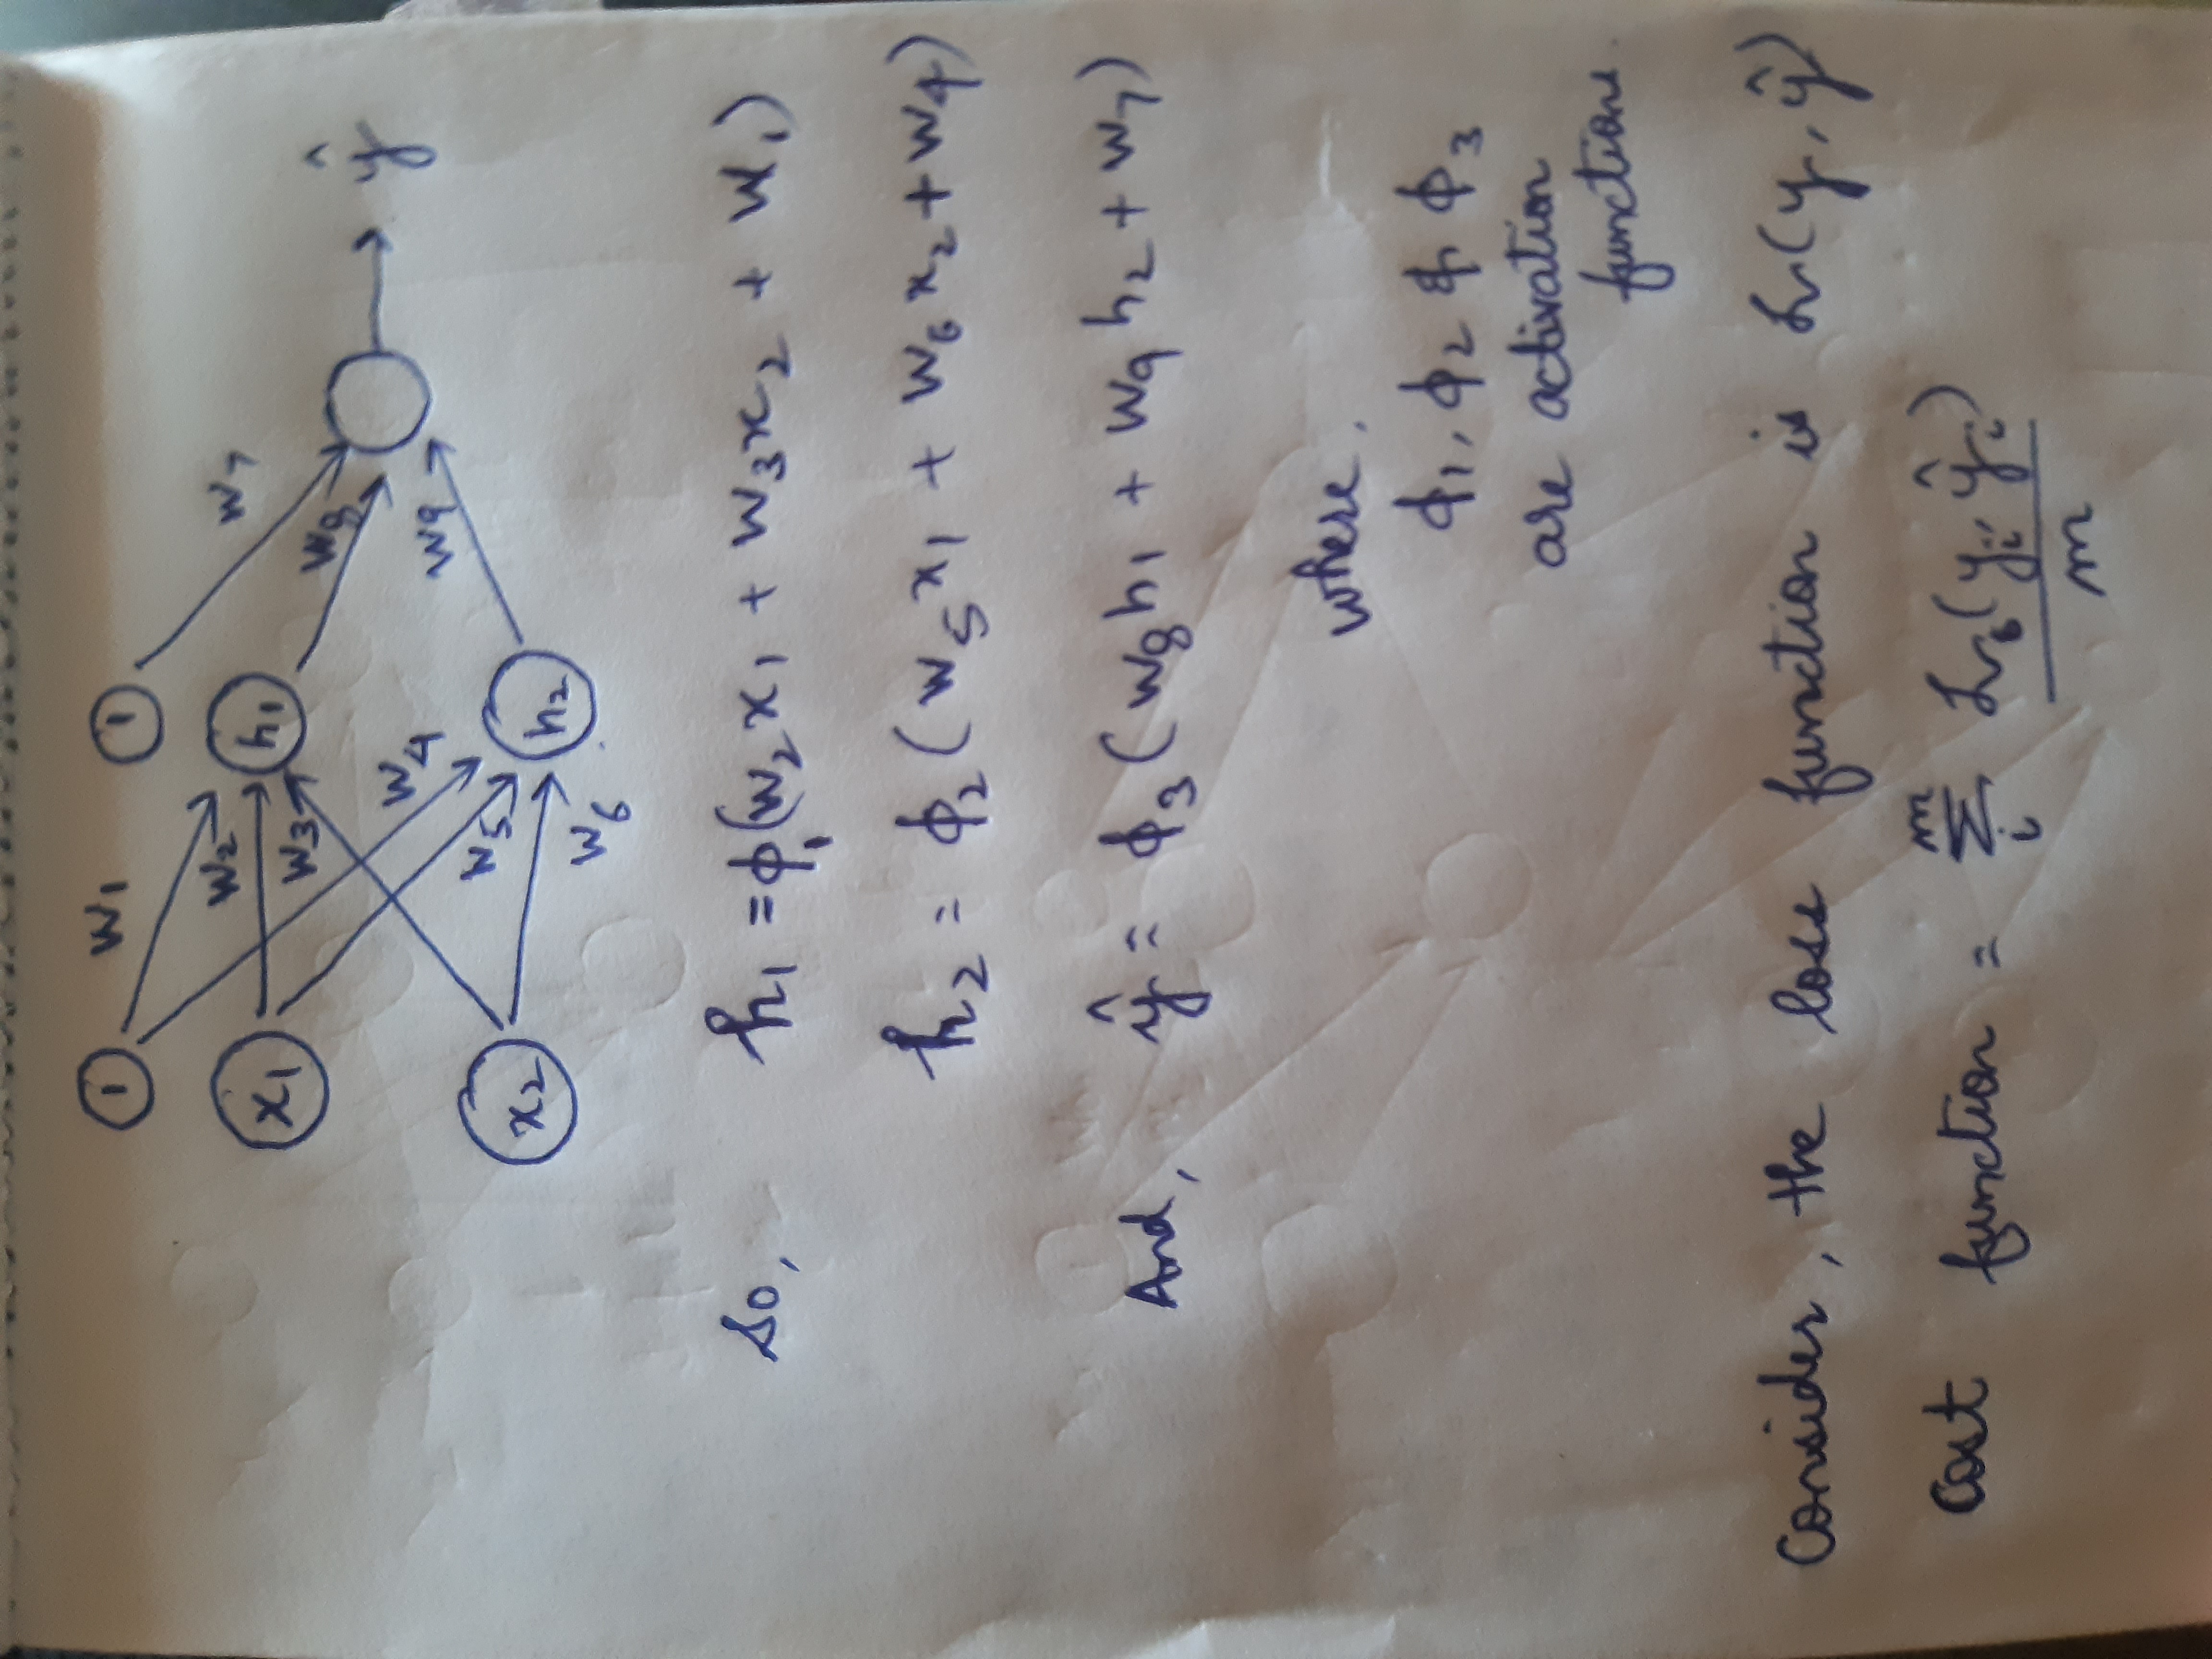 1 w1 1
w2 w7
x1 h1
w3 w8
ŷ
w4 w9
w5
x2 h2
w6
So, h₁ = ϕ₁(w₂x₁ + w₃x₂ + w₁)
h₂ = ϕ₂(w₅x₁ + w₆x₂ + w₄)
And, ŷ = ϕ₃(w₈h₁ + w₉h₂ + w₇)
where,
ϕ₁, ϕ₂ & ϕ₃
are activation
functions.
Consider, the loss function is L(y, ŷ)
Cost function = ∑ᵢᵐ Lᵢ(yᵢ, ŷᵢ)
m